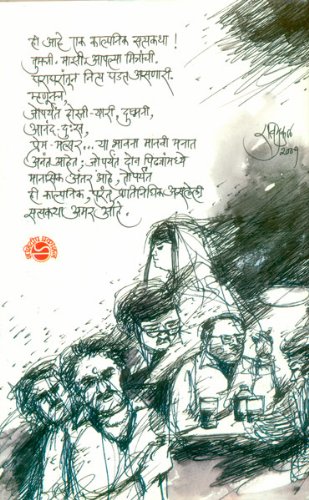 ही आहे एक काल्पनिक सत्यकथा !
तुमची-माझी, आपल्या मित्रांची.
घराघरांतून नित्य घडत असणारी.
म्हणूनच,
जोपर्यंत दोस्ती-यारी, दुष्मनी,
आनंद-दुःख,
प्रेम-मत्सर... या भावना मानवी मनात
अनंत आहेत; जोपर्यंत दोन पिढ्यांमध्ये
मानसिक अंतर आहे, तोपर्यंत
ही काल्पनिक, परंतु प्रातिनिधिक असलेली
सत्यकथा अमर आहे.